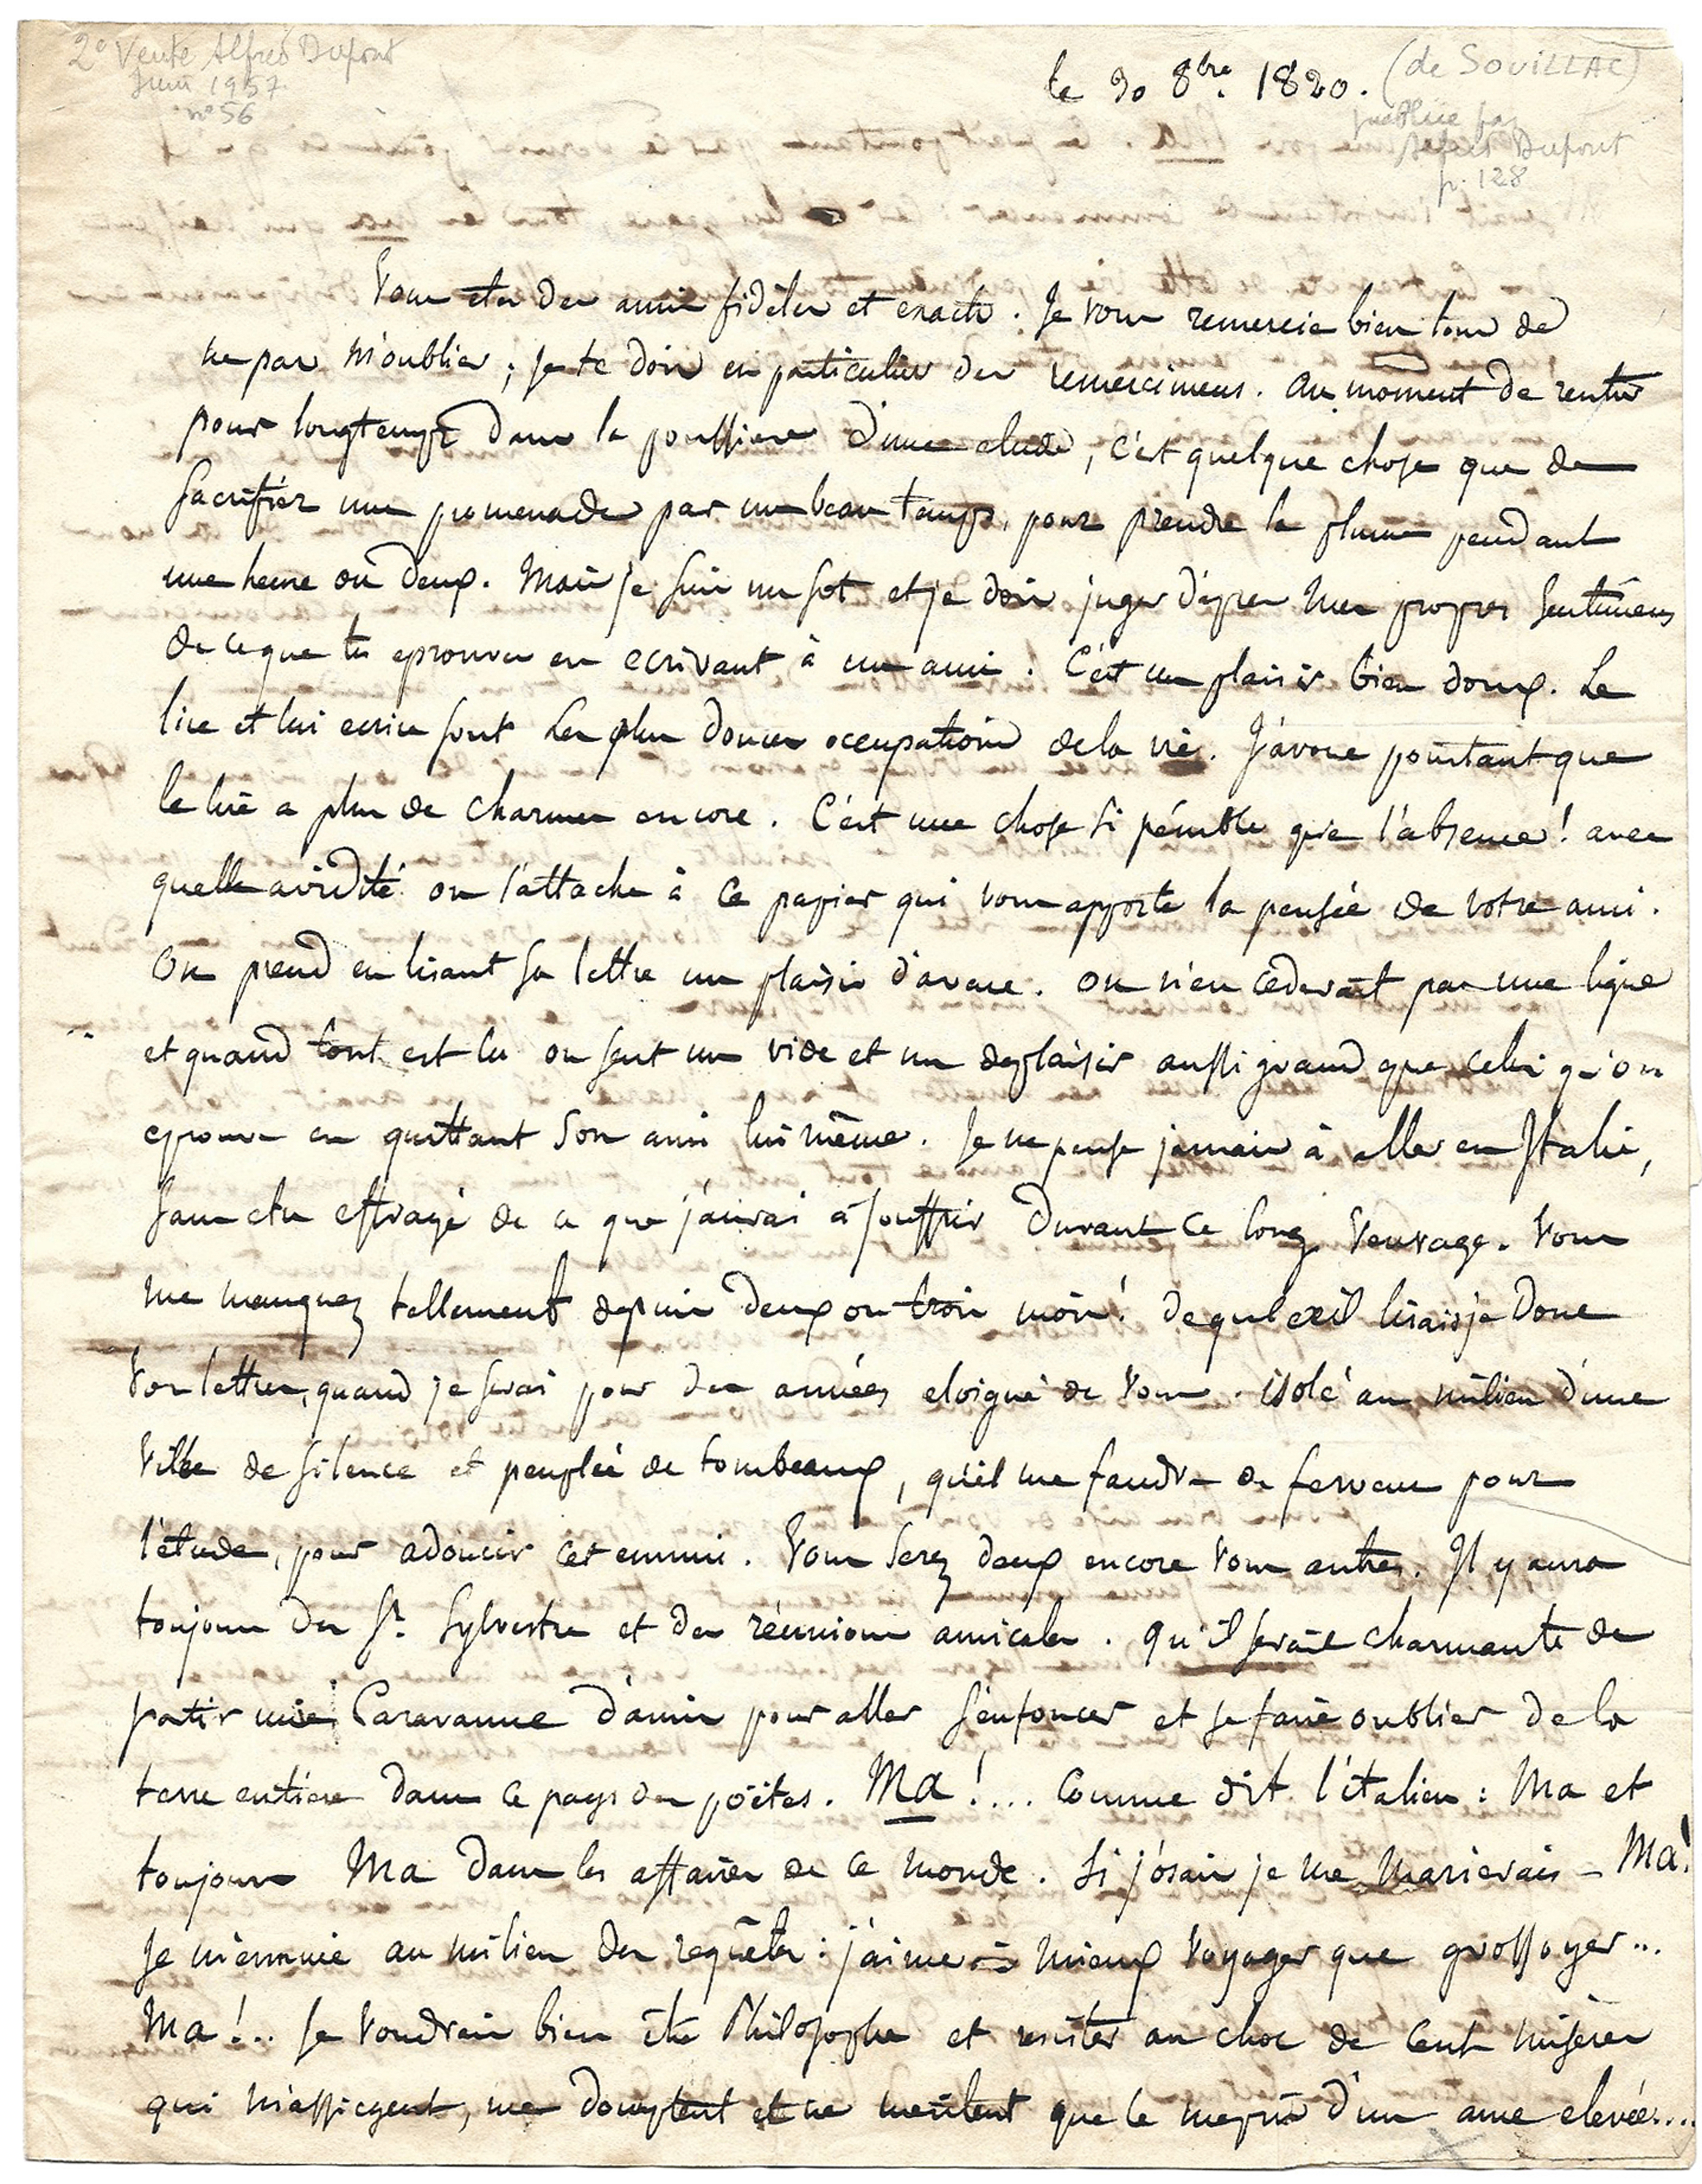 2e Vente Alfred Dupont
Juin 1957
n° 56
le 30 8bre. 1820. (de SOUILLAC)
publiée par
Alfred Dupont
p. 128
Vous etes des amis fidèles et exacts. Je vous remercie bien tous de
ne pas m'oublier ; je te dois en particulier des remercimens. Au moment de rentrer
pour longtemps dans la poussiere d'une etude, c'est quelque chose que de
sacrifier une promenade par un beau temps, pour prendre la plume pendant
une heure ou deux. Mais je suis un sot et je dois juger d'après mes propres sentimens
de ce que tu eprouves en ecrivant à un ami. C'est un plaisir bien doux. Le
lire et lui ecrire sont les plus douces occupations de la vie. J'avoue pourtant que
le lire a plus de charmes encore. C'est une chose si pénible que l'absence ! avec
quelle avidité on s'attache à ce papier qui vous apporte la pensée de votre ami.
On prend en lisant sa lettre un plaisir d'avare. on n'en cederait pas une ligne
et quand tout est lu on sent un vide et un deplaisir aussi grand que celui qu'on
eprouve en quittant son ami lui même. Je ne pense jamais à aller en Italie,
sans etre effrayé de ce que j'aurai à souffrir durant ce long veuvage. Vous
me manquez tellement depuis deux ou trois mois ! de quel œil lirais je donc
vos lettres, quand je serai pour des années eloigné de vous. isolé au milieu d'une
ville de silence et peuplée de tombeaux, qu'il me faudra de ferveur pour
l'étude, pour adoucir cet ennui. Vous serez deux encore vous autres. Il y aura
toujours des St. Sylvestre et des réunions amicales. qu'il serait charmante de
partir une Caravanne d'amis pour aller s'enfoncer et se faire oublier de la
terre entière dans ce pays des poëtes. Ma !.... Comme dit l'italien : Ma et
toujours Ma dans les affaires de ce monde. Si j'osais je me marierais - Ma !
Je m'ennuie au milieu des requêtes : j'aime mieux voyager que grossoyer...
Ma !.. Je voudrais bien être Philosophe et resister au choc de cent misères
qui m'assiegent, me domptent et ne meritent que le mepris d'un ame elevée....